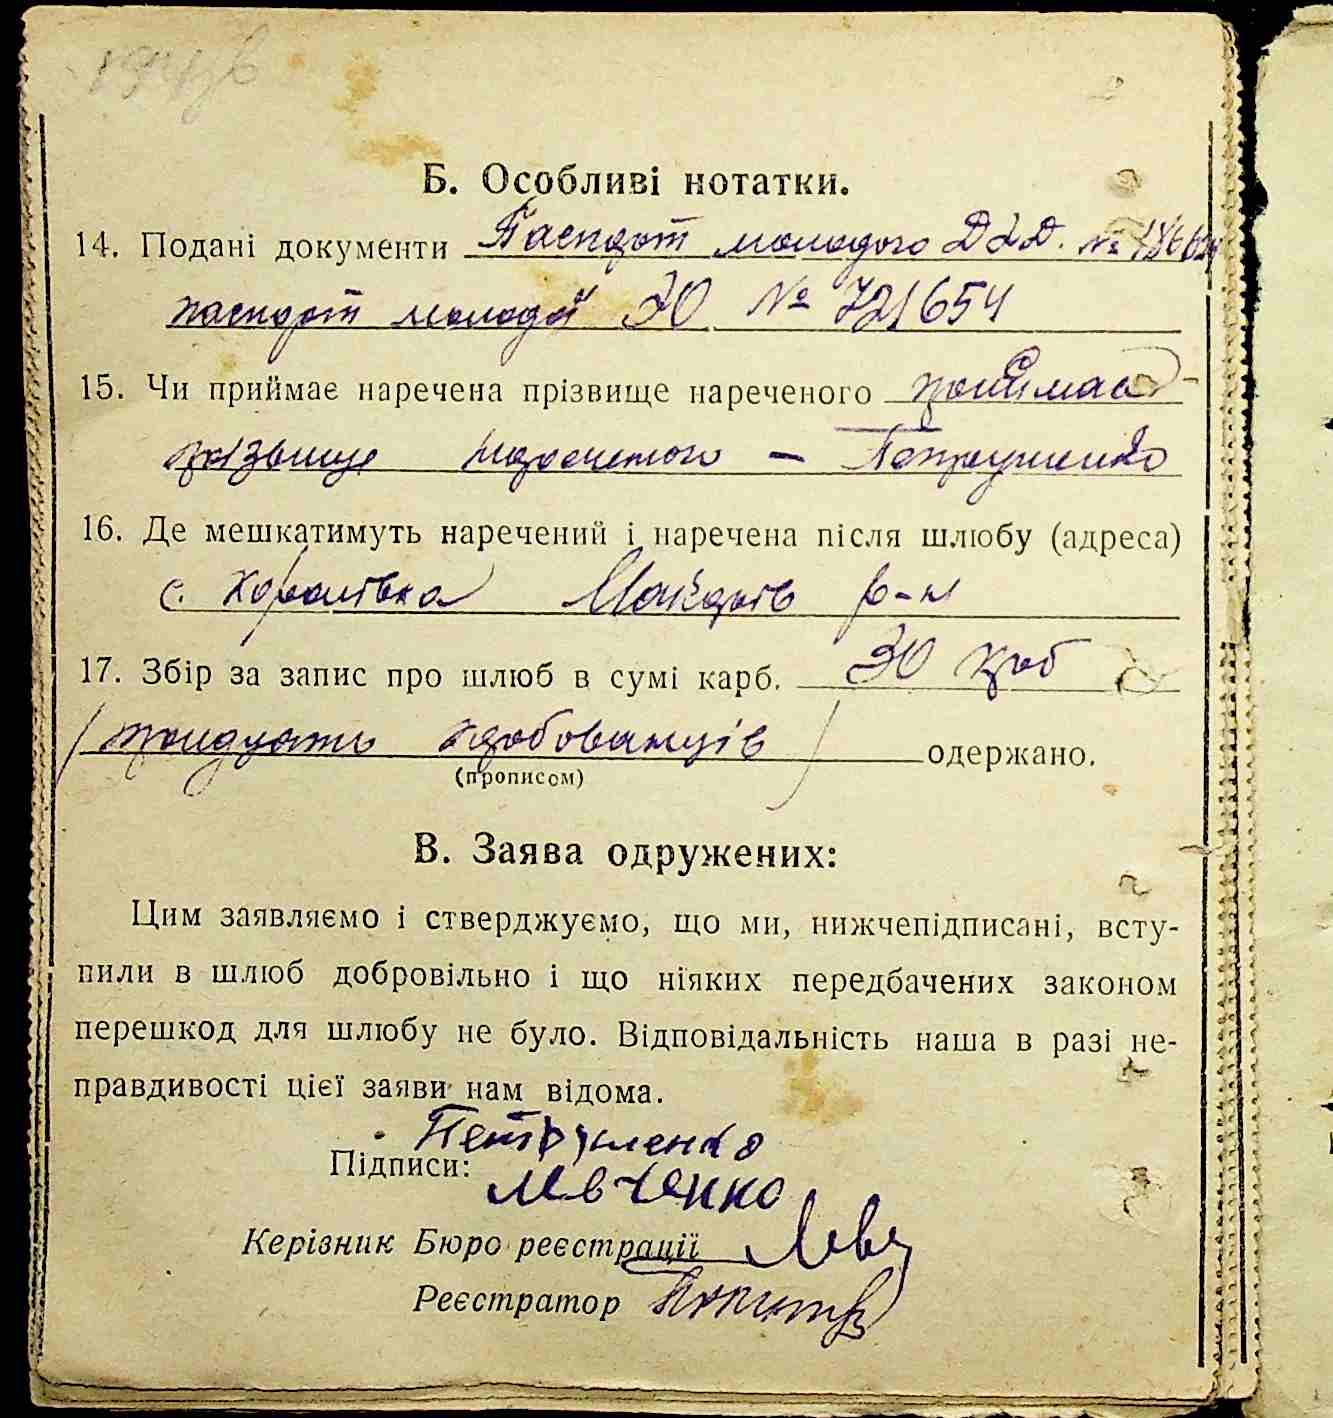 Б. Особливі нотатки.
14. Подані документи Паспорт молодого №
паспорт молодої ЭЮ № 721654
15. Чи приймає наречена прізвище нареченого приймає
прізвище нареченого — Петрушенко
16. Де мешкатимуть наречений і наречена після шлюбу (адреса)
с. Королівка Макарів р-н
17. Збір за запис про шлюб в сумі карб. 30 крб
(тридцять карбованців)
одержано.
(прописом)
В. Заява одружених:
Цим заявляємо і стверджуємо, що ми, нижчепідписані, всту-
пили в шлюб добровільно і що ніяких передбачених законом
перешкод для шлюбу не було. Відповідальність наша в разі не-
правдивості цієї заяви нам відома.
Петрушенко
Підписи:
Левченко
Керівник Бюро реєстрації
Реєстратор